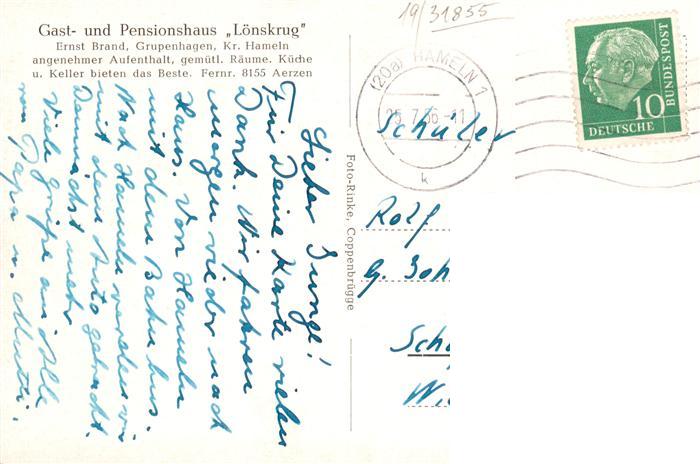 Gast- und Pensionshaus „Lönskrug"
Ernst Brand, Grupenhagen, Kr. Hameln
angenehmer Aufenthalt, gemütl. Räume. Küche
u. Keller bieten das Beste. Fernr. 8155 Aerzen
Lieber Junge!
Für Deine Karte vielen
Dank. Wir fahren
morgen wieder nach
Haus. Von Hameln
mit dem Bahn bus.
Nach Hameln werden wir
mit dem Auto gebracht.
Demnächst mehr
Viele Grüße an Alle
von Papa u. Mutti.
Foto-Rinke, Coppenbrügge
19/31855
(20a) HAMELN 1
25.7.56-11
k
DEUTSCHE
BUNDESPOST
10
Schüler
Rolf
Sch